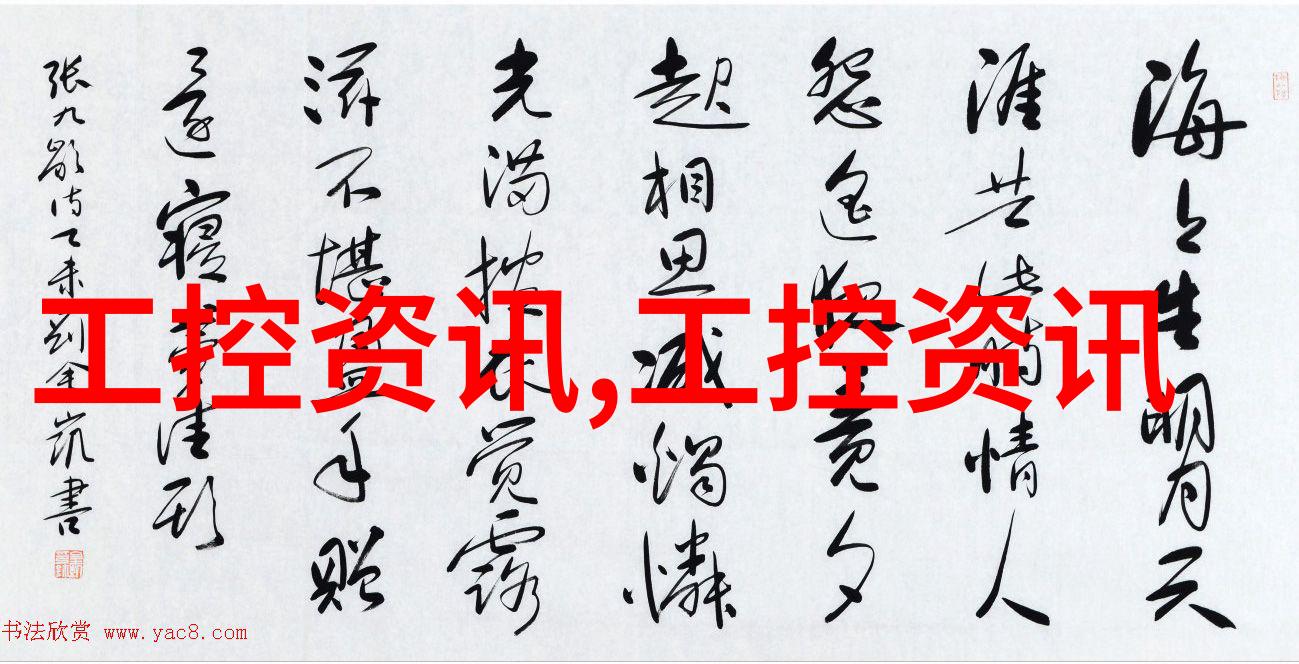 海上生明月天
涯共此時情人
怨遥夜竟夕
起相思滅燭憐
光滿披衣覺露
滋不堪盈手贈
還寢夢佳期
张九龄诗乙未刘金凯書
工控资讯,工控资讯
书法欣赏 www.yac8.com